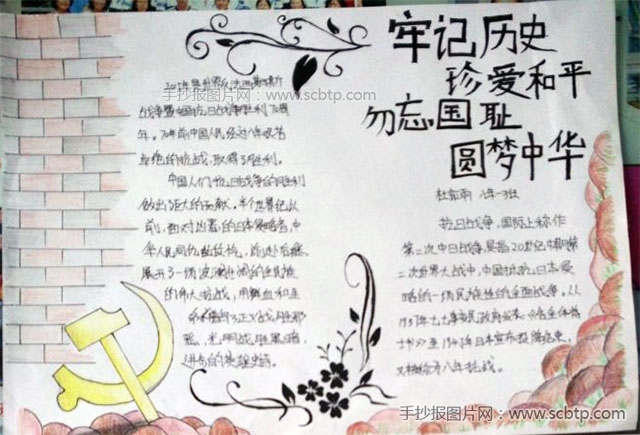 牢记历史
珍爱和平
勿忘国耻
圆梦中华
手抄报图片网:www.scbtp.com
2015年是世界反法西斯
战争暨中国抗日战争胜利70周
年。70年前中国人民经过八年艰苦
卓绝的抗战,取得了胜利。
中国人们为抗日战争的胜利
做出了巨大的贡献。半个世纪以
前,面对凶恶的日本侵略者,中
华人民同仇敌忾,前赴后继,
展开了一场波澜壮阔的全民族
的伟大抗战,用鲜血和生
命谱写了正义战胜邪
恶,光明战胜黑暗,
进步的英雄史诗。
八年一班
抗日战争,国际上称作
第二次中日战争,是指20世纪中期第
二次世界大战中,中国抵抗日本侵
略的一场民族性的全面战争。从
1937年七七事变
至1945年日本宣布投降结束,
又被称为八年抗战。
手抄报图片网:www.scbtp.com